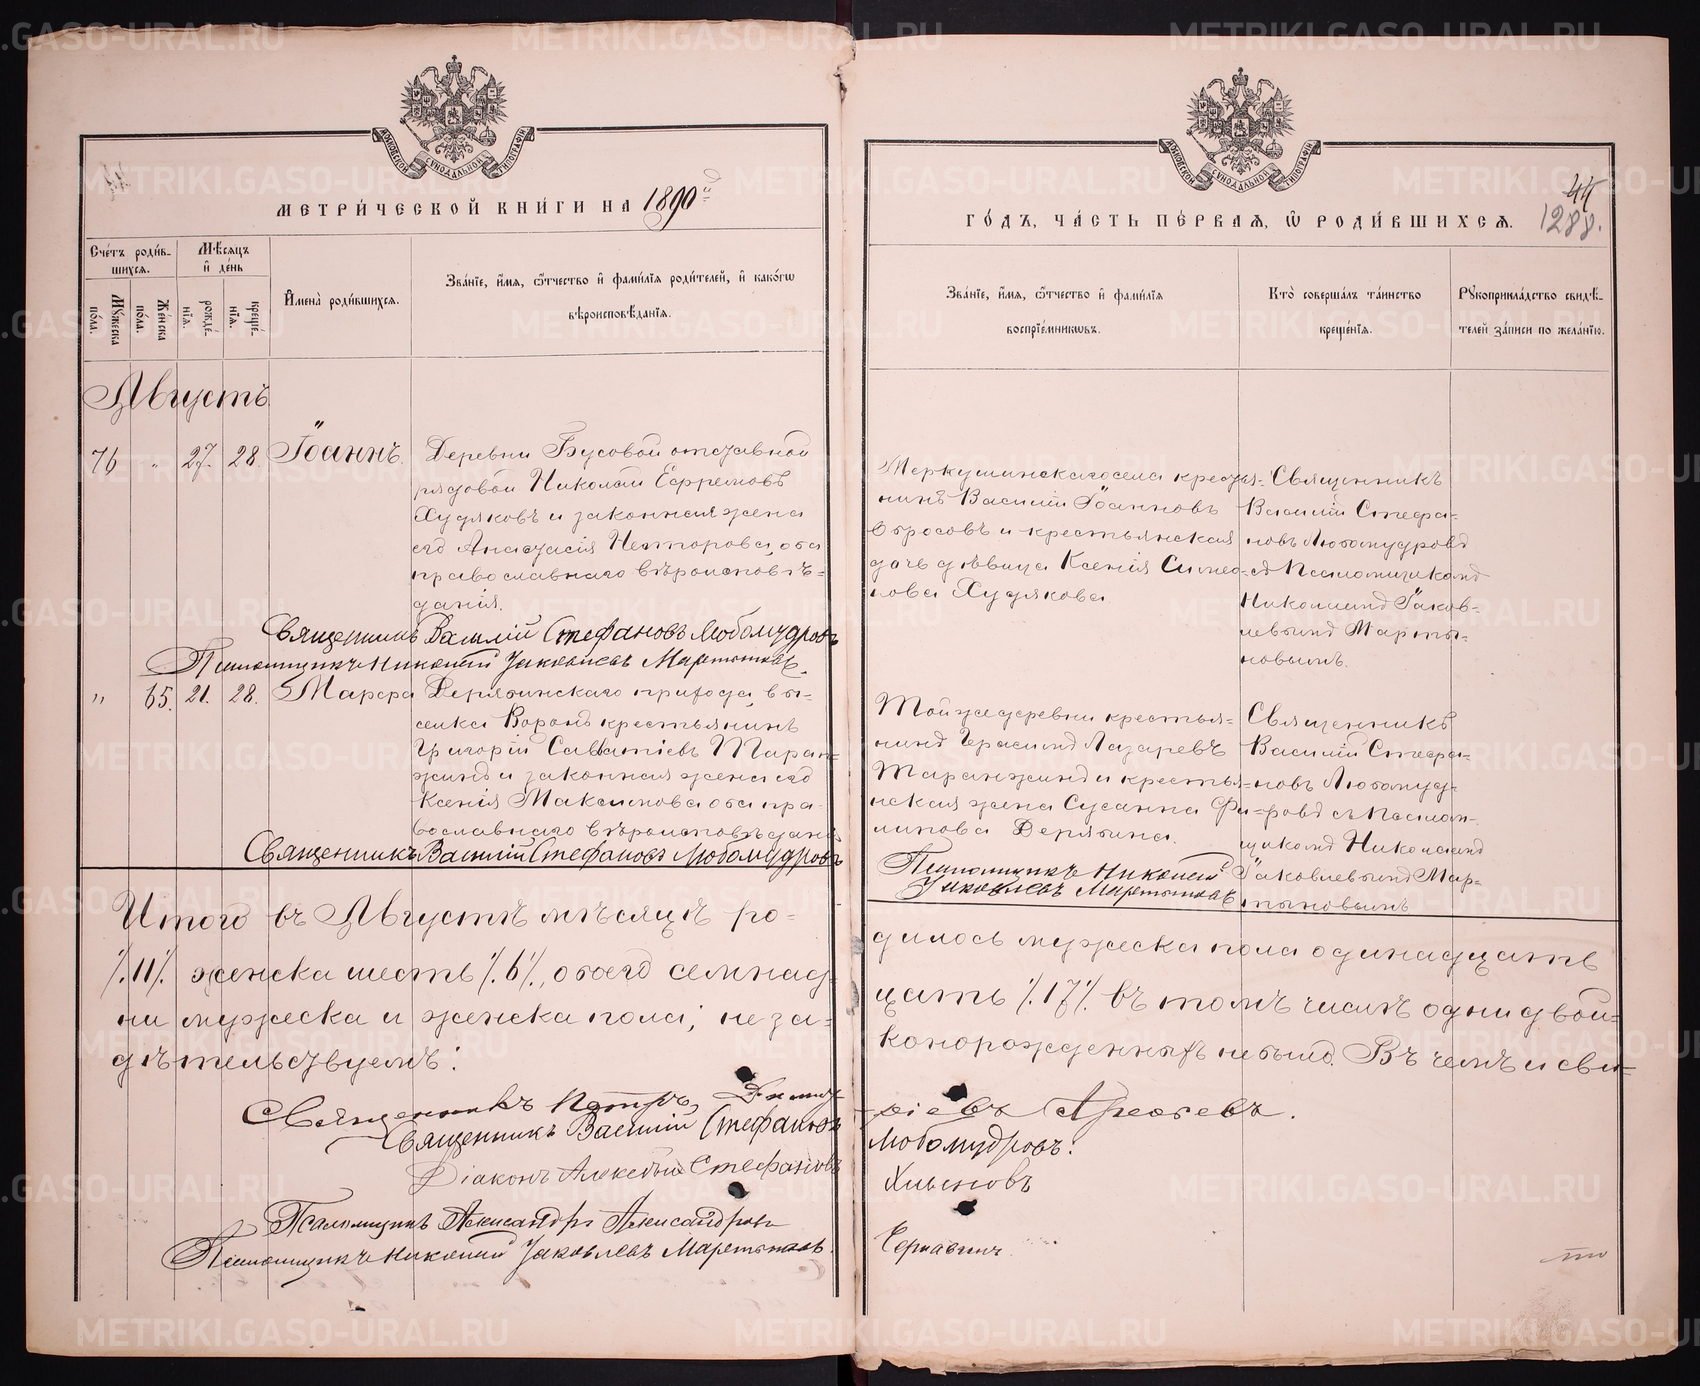 МЕТРИ́ЧЕСКОЙ КНИ́ГИ НА 1890й
ГО́ДЪ, ЧА́СТЬ ПЕ́РВАѦ, Ѽ РОДИ́ВШИХСѦ.
44
1288.
Сче́тъ роди́в-
шихсѧ.
Мѣ́сѧцъ
и҆ де́нь
Мꙋ́жеска
по́ла.
Же́нска
по́ла.
рожде́-
нїѧ.
креще́-
нїѧ.
И҆мена̀ роди́вшихсѧ.
Зва́нїе, и҆́мѧ, ѻ҆́тчество и҆ фами́лїѧ роди́телей, и҆ како́гѡ
вѣроисповѣ́данїѧ.
Зва́нїе, и҆́мѧ, ѻ҆́тчество и҆ фами́лїѧ
воспрїе́мникѡвъ.
Кто̀ соверша́лъ та́инство
креще́нїѧ.
Рꙋкоприкла́дство свидѣ́-
телей за́писи по жела́нїю.
Августъ
76 " 27. 28. Іоаннъ.
Деревни Бусовой отставной
рядовой Николай Ефремовъ
Худяковъ и законная жена
его Анастасія Несторова, оба
православнаго вѣроисповѣ-
данія.
Меркушинскаго села крестья-
нинъ Василій Іоанновъ
Обросовъ и крестьянская
дочь дѣвица Ксенія Симео-
нова Худякова
Священникъ
Василій Стефа-
новъ Любомудровъ
съ Псаломщикомъ
Николаемъ Іаков-
левымъ Марты-
новымъ.
Священникъ Василій Стефановъ Любомудровъ
Псаломщикъ Николай Іаковлевъ Мартыновъ.
" 65. 21. 28. Марфа
Дерябинскаго прихода, вы-
селка Воронъ крестьянинъ
Григорій Савватіевъ Таран-
жинъ и законная жена его
Ксенія Максимова оба пра-
вославнаго вѣроисповѣданія
Тойже деревни крестья-
нинъ Герасимъ Лазаревъ
Таранжинъ и крестья-
нская жена Сусанна Фи-
липова Дерябина.
Священникъ
Василій Стефа-
новъ Любомуд-
ровъ съ Псалом-
щикомъ Николаемъ
Іаковлевымъ Мар-
тыновымъ
Священникъ Василій Стефановъ Любомудровъ
Псаломщикъ Николай
Іаковлевъ Мартыновъ
Итого въ Августѣ мѣсяцѣ ро-
дилось мужеска пола одинадцать
/.11/. женска шесть /.6/., обоего семнад-
цать /.17/. въ томъ числѣ одни двой-
ни мужеска и женска пола; неза-
конорожденныхъ небыло. Въ чемъ и сви-
дѣтельствуемъ:
Священникъ Петръ Димит-
ріевъ Арефьевъ.
Священникъ Василій Стефановъ
Любомудровъ.
Діаконъ Алексѣй Стефановъ
Хлыновъ
Псаломщикъ Александръ Александровъ
Чернавинъ
Псаломщикъ Николай Іаковлевъ Мартыновъ.
METRIKI.GASO-URAL.RU